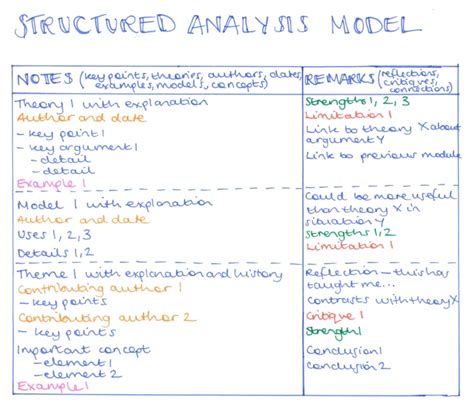 STRUCTURED ANALYSIS MODEL
NOTES (key points, theories, authors, dates,
examples, models, concepts)
REMARKS (reflections,
critiques,
connections)
Theory 1 with explanation
Author and date
- key point 1
- key argument 1
- detail
- detail
Example 1
Strengths 1, 2, 3
Limitation 1
Link to theory X about
argument Y
Link to previous module
Model 1 with explanation
Author and date
Uses 1, 2, 3
Details 1, 2
Could be more useful
than theory X in
situation Y
Strengths 1, 2
Limitation 1
Theme 1 with explanation and history
Contributing author 1
- key points
Contributing author 2
- key points
Important concept
- element 1
- element 2
Example 1
Reflection - this has
taught me...
Contrasts with theory X
Critique 1
Strength 1
Conclusion 1
Conclusion 2